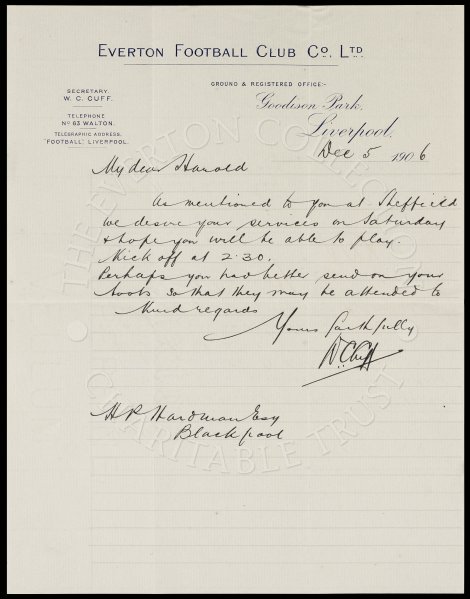 EVERTON FOOTBALL CLUB CO. LTD
SECRETARY.
W. C. CUFF.
TELEPHONE
NO 63 WALTON.
TELEGRAPHIC ADDRESS,
"FOOTBALL" LIVERPOOL.
GROUND & REGISTERED OFFICE:-
Goodison Park,
Liverpool,
Dec 5 1906
My dear Harold
As mentioned to you at Sheffield
we desire your services on Saturday
& hope you will be able to play.
Kick off at 2.30.
Perhaps you had better send on your
boots so that they may be attended to
Kind regards
Yours faithfully
W. C. Cuff
H P Hardman Esq
Blackpool
THE EVERTON COLLECTION
CHARITABLE TRUST